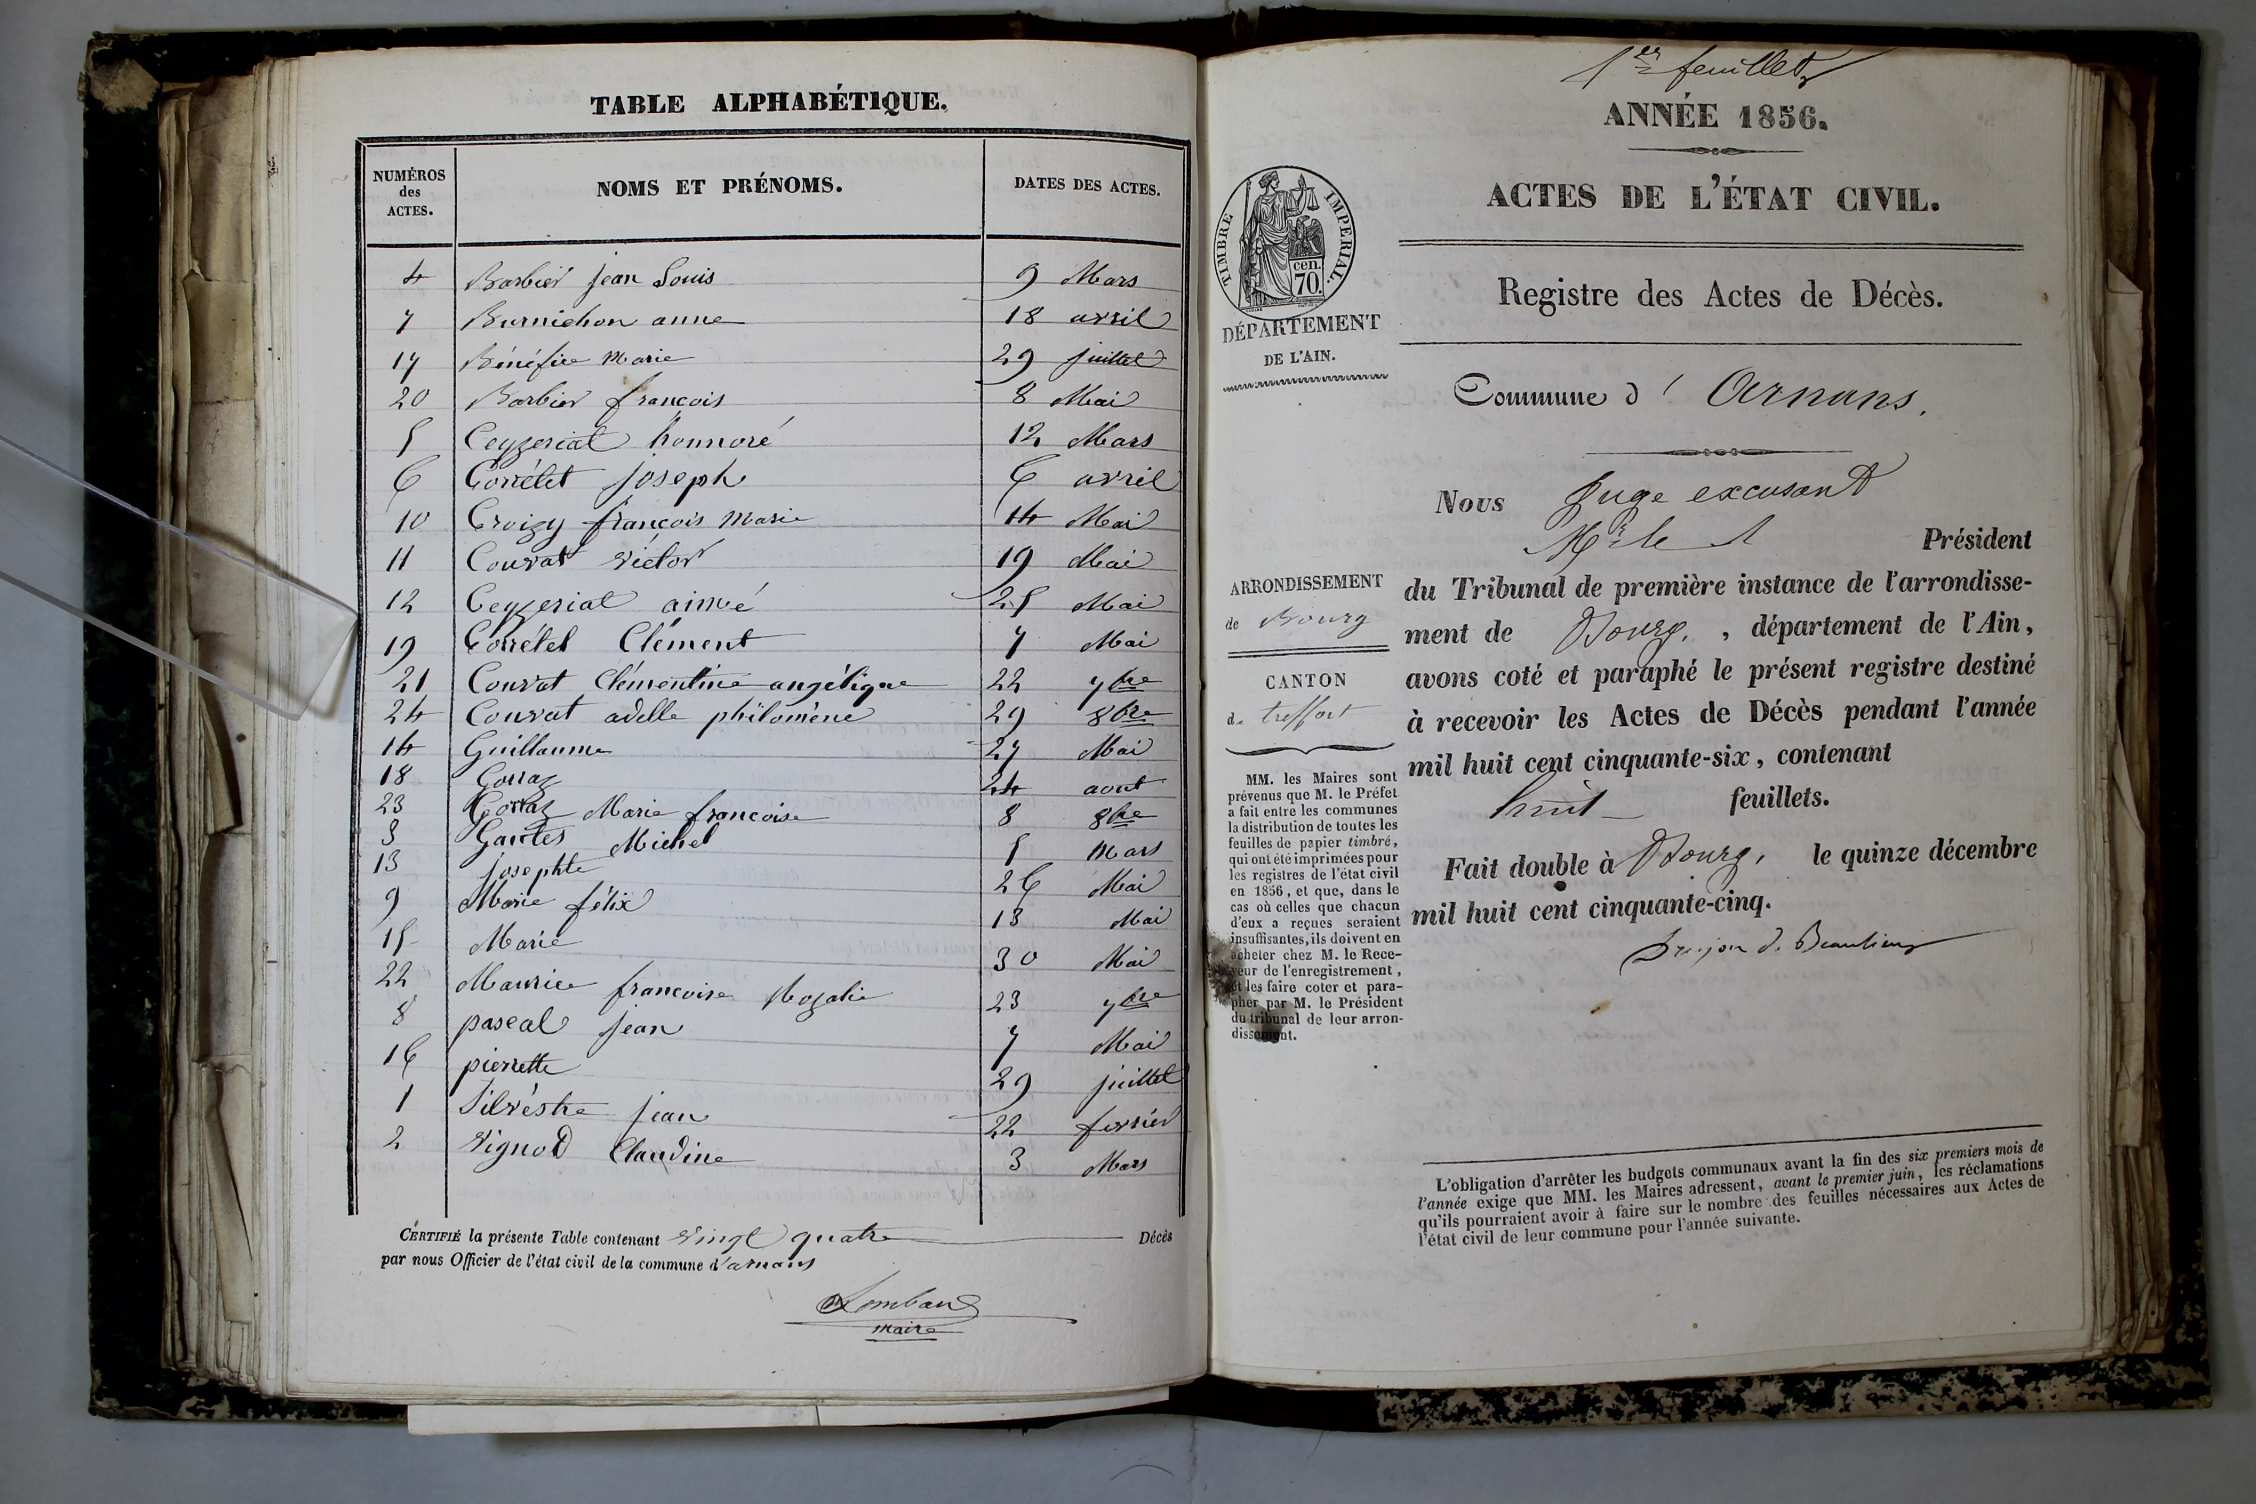 TABLE ALPHABÉTIQUE.
NUMÉROS des ACTES. NOMS ET PRÉNOMS. DATES DES ACTES.
4 Barbier jean Louis 9 Mars
7 Burnichon anne 18 avril
17 Bénéfice Marie 29 juillet
20 Barbier françois 8 Mai
5 Ceyzeriat honnoré 12 Mars
6 Corrélet joseph 6 avril
10 Croizy françois Marie 14 Mai
11 Couvat victor 19 Mai
12 Ceyzeriat aimé 25 Mai
19 Corrélet Clément 7 Mai
21 Couvat Clémentine angélique 22 7bre
24 Couvat adelle philomène 29 8bre
14 Guillaume 27 Mai
18 Gorraz 24 aout
23 Gorraz Marie francoise 8 8bre
3 Michel 5 Mars
13 josephte 26 Mai
9 Marie félix 13 Mai
15 Marie 30 Mai
22 Maurice francoise Rozalie 23 7bre
8 pascal jean 7 Mai
16 pierrette 29 juillet
1 Silvéstre jean 22 fevrier
2 vignod Claudine 3 Mars
CERTIFIÉ la présente Table contenant vingt quatre Décès
par nous Officier de l'état civil de la commune d'arnans
maire
1er feuillet
ANNÉE 1856.
ACTES DE L'ÉTAT CIVIL.
TIMBRE IMPERIAL.
cen.
70.
DÉPARTEMENT
DE L'AIN.
Registre des Actes de Décès.
Commune d' Arnans.
Nous Juge excusant
Mr le Président
du Tribunal de première instance de l'arrondisse-
ment de Bourg. , département de l'Ain,
avons coté et paraphé le présent registre destiné
à recevoir les Actes de Décès pendant l'année
mil huit cent cinquante-six, contenant
huit feuillets.
Fait double à Bourg, le quinze décembre
mil huit cent cinquante-cinq.
ARRONDISSEMENT
de Bourg
CANTON
de treffort
MM. les Maires sont
prévenus que M. le Préfet
a fait entre les communes
la distribution de toutes les
feuilles de papier timbré,
qui ont été imprimées pour
les registres de l'état civil
en 1856, et que, dans le
cas où celles que chacun
d'eux a reçues seraient
insuffisantes, ils doivent en
acheter chez M. le Rece-
veur de l'enregistrement,
et les faire coter et para-
pher par M. le Président
du tribunal de leur arron-
dissement.
L'obligation d'arrêter les budgets communaux avant la fin des six premiers mois de
l'année exige que MM. les Maires adressent, avant le premier juin, les réclamations
qu'ils pourraient avoir à faire sur le nombre des feuilles nécessaires aux Actes de
l'état civil de leur commune pour l'année suivante.